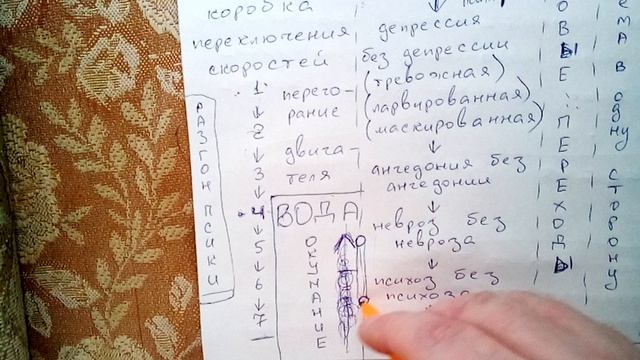 коробка
переключения
скоростей
РАЗГОН ПСИКИ
1
2
3
4
5
6
7
перего-
рание
двига-
теля
ВОДА
ОКУНАНИЕ
депрессия
без депрессии
(тревожная)
(ларвированная)
(маскированная)
ангедония без
ангедонии
невроз без
невроза
психоз без
психоза
ОВЫЕ: ПЕРЕХОДЫ
ЕМА В ОДНУ СТОРОНУ